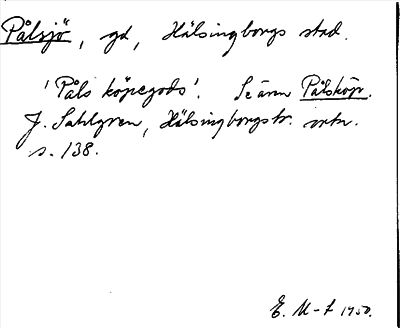 Pålsjö, gd, Hälsingborgs stad.
'Påls köpegods'. Se även Pålsköp.
J. Sahlgren, Hälsingborgstr. ortn.
s. 138.
E. M-t 1950.